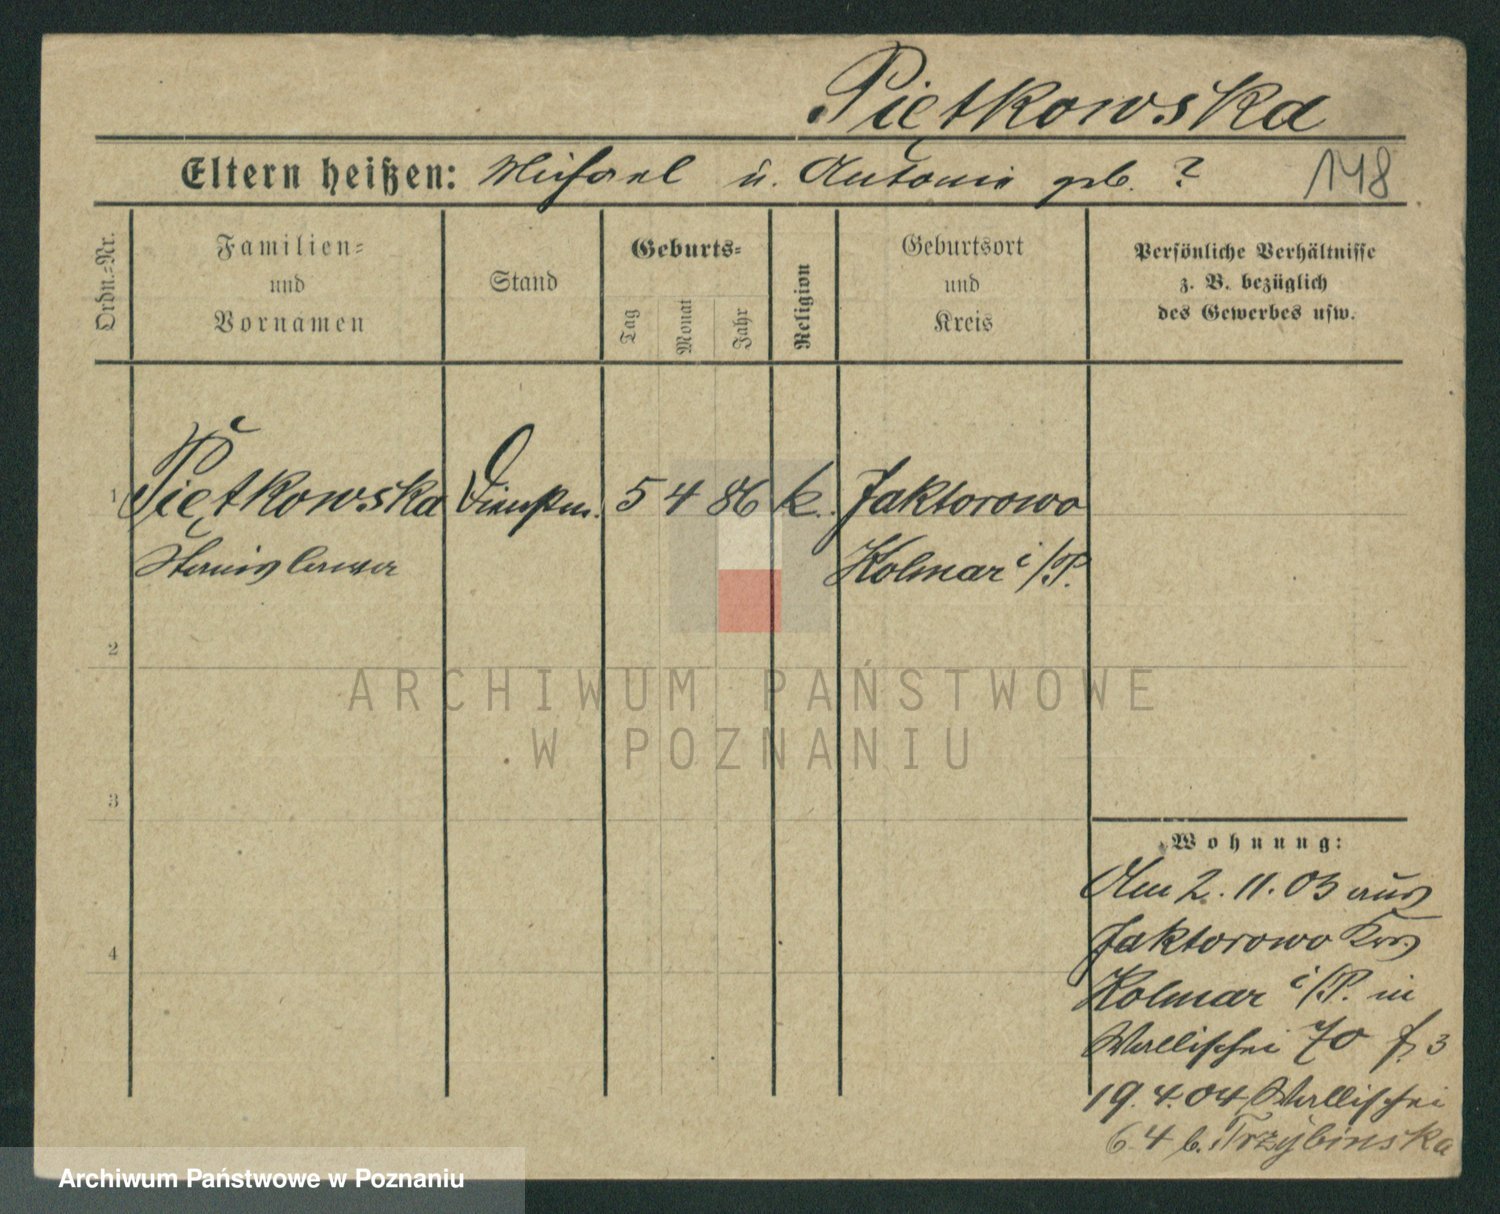 Piętkowska
Eltern heißen: Michael u. Antonie geb. ?
148
Ordn.-Nr.
Familien-
und
Vornamen
Stand
Geburts-
Tag
Monat
Jahr
Religion
Geburtsort
und
Kreis
Persönliche Verhältnisse
z. B. bezüglich
des Gewerbes usw.
1 Piętkowska Dienstm. 5 4 86 k. Jaktorowo
Stanislawa Kolmar i/P.
2
3
4
ARCHIWUM PAŃSTWOWE
W POZNANIU
Wohnung:
Am 2. 11. 03 aus
Jaktorowo Krs
Kolmar i/P. in
Wallischei 70
19. 4. 04 Wallischei
64 b. Trzybinska
Archiwum Państwowe w Poznaniu